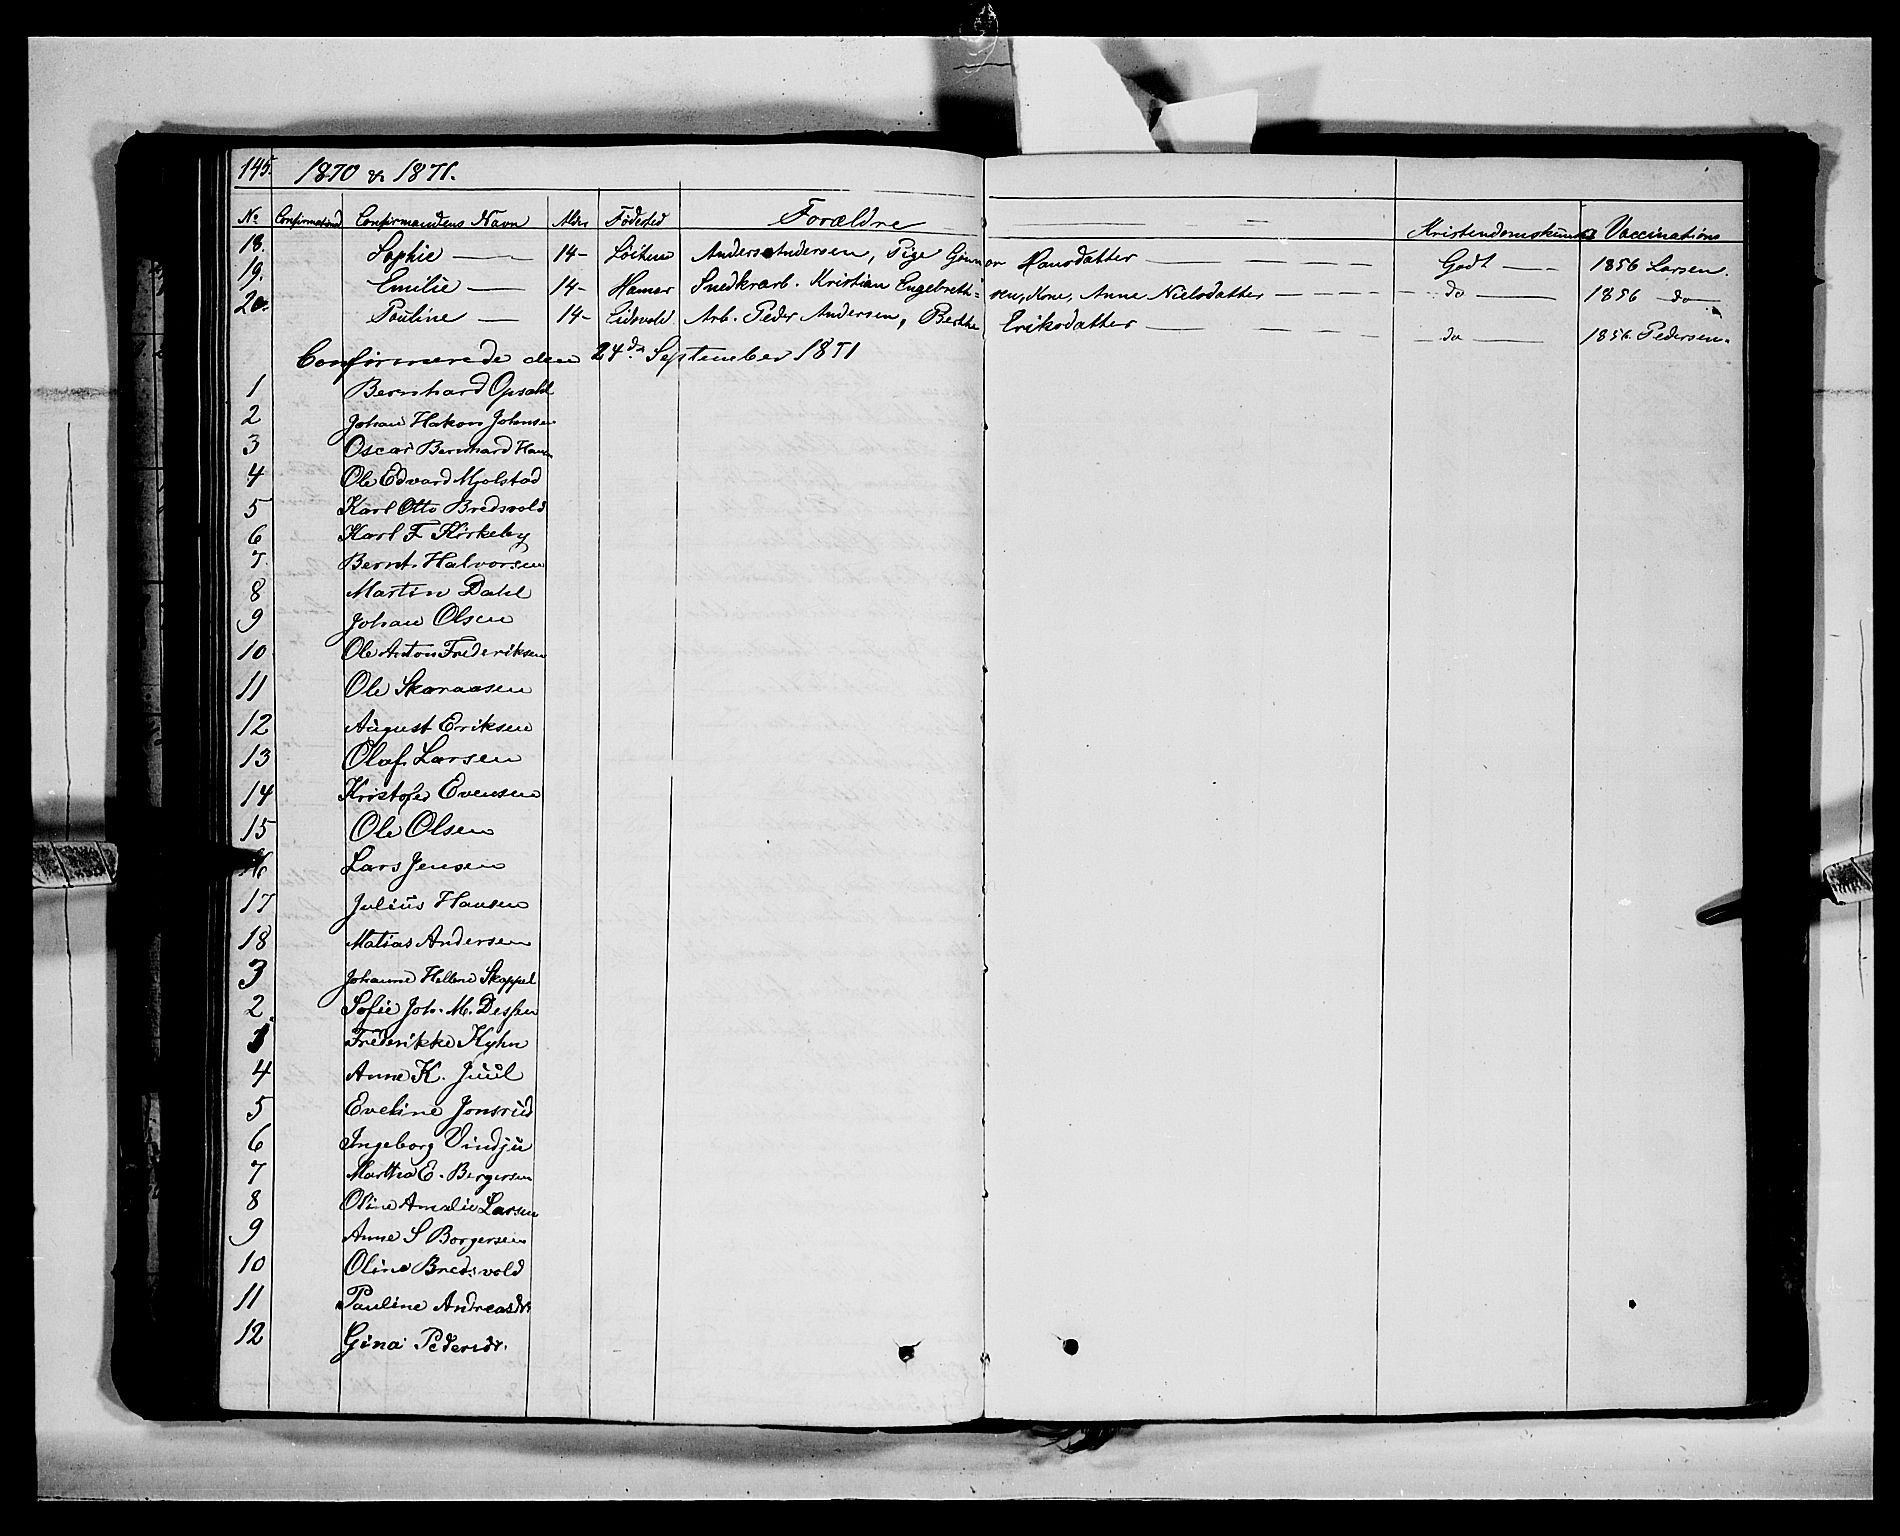 145. 1870 & 1871.
No Confirmationd Confirmandens Navn Alder Fødested Forældre — — Kristendomskunds Vaccinations
18. Sophie — 14- Løiten Anders Andersen, Pige Gunnor Hansdatter — — — — Godt — 1856 Larsen.
19. Emilie — 14- Hamar Snedkrarb. Kristian Engebrethsen, Kone, Anne Nielsdatter — — — — do — 1856 do
20. Pauline — 14- Eidsvold Arb. Peder Andersen, Berthe Eriksdatter — — — — do — 1856 Pedersen.
Confirmerede den 24de September 1871
1 Bernhard Opsahl
2 Johan Hakon Johnsen
3 Oscar Bernhard Hansen
4 Ole Edvard Mjølstad
5 Karl Otto Bredsvold
6 Karl F Kirkeby
7. Bernt. Halvorsen
8 Martin Dahl
9 Johan Olsen
10 Ole Anton Frederiksen
11 Ole Skaraasen
12 August Eriksen
13 Olaf Larsen
14 Kristofer Evensen
15 Ole Olsen
16 Lars Jensen
17 Julius Hansen
18 Matias Andersen
3 Johanne Hellene Skappel
2. Sofie Joh. M. Dessen
1 Frederikke Kyhn
4 Anne K. Juul
5 Eveline Jonsrud
6 Ingeborg Vindju
7 Martha E. Bergersen
8 Oline Amalie Larsen
9 Anne S Borgersen
10 Oline Bredsvold
11 Pauline Andreasdt
12 Gina Pedersdt.